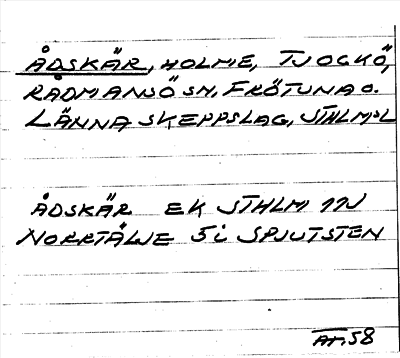 ÅDSKÄR, HOLME, TJOCKÖ,
RÅDMANSÖ SN, FRÖTUNA O.
LÄNNA SKEPPSLAG, STHLMSL
ÅDSKÄR EK STHLM 11J
NORRTÄLJE 5i SPJUTSTEN
AT.58